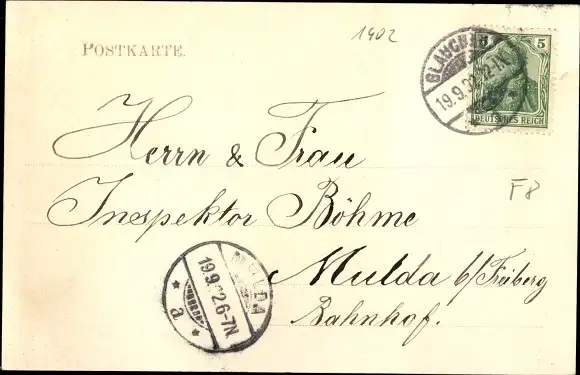 1902
POSTKARTE.
5 5
DEUTSCHES REICH
19.9.02
Herrn & Frau
F8
Inspektor Böhme
Mulda b/Freiberg
Bahnhof.
MULDA
19.9.02 6-7N.
a